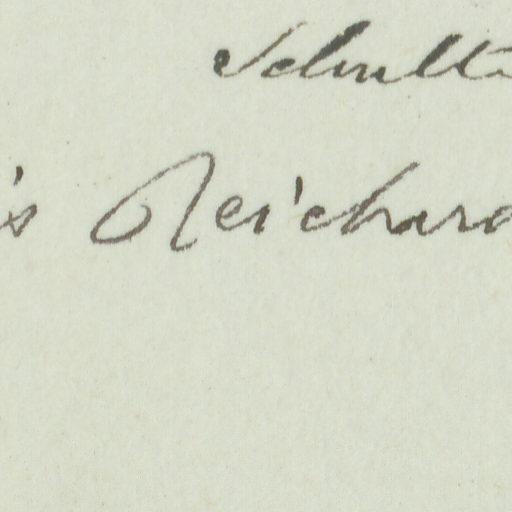 Schult
is Reichard